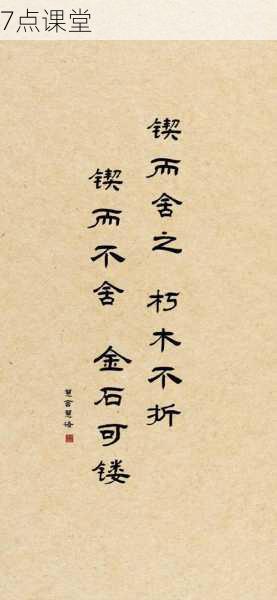 7点课堂
锲而舍之 朽木不折
锲而不舍 金石可镂
慧言慧语